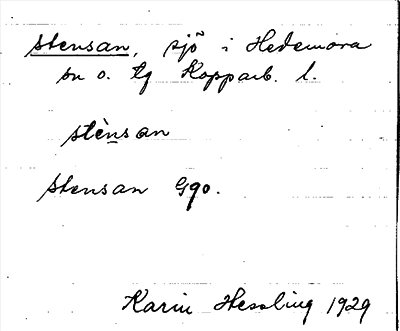 Stensan, sjö i Hedemora
sn o. tg Kopparb. l.
stènsan
Stensan Gqo.
Karin Hessling 1929